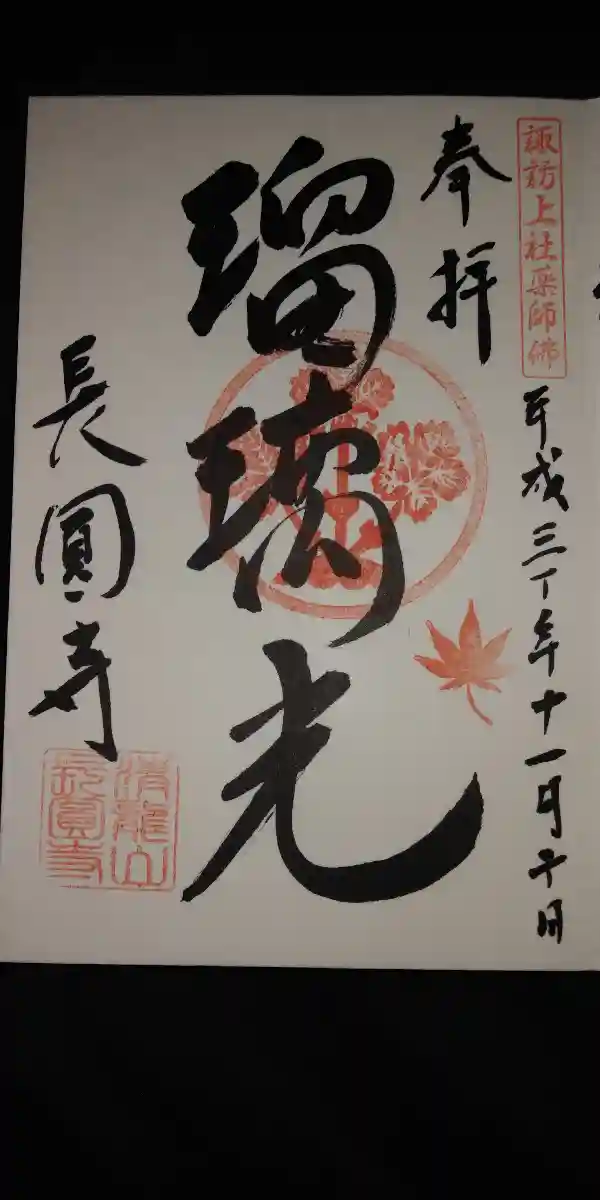 諏訪上社薬師佛
奉拝
平成三十年十一月十日
瑠璃光
長圓寺
清龍山
長圓寺